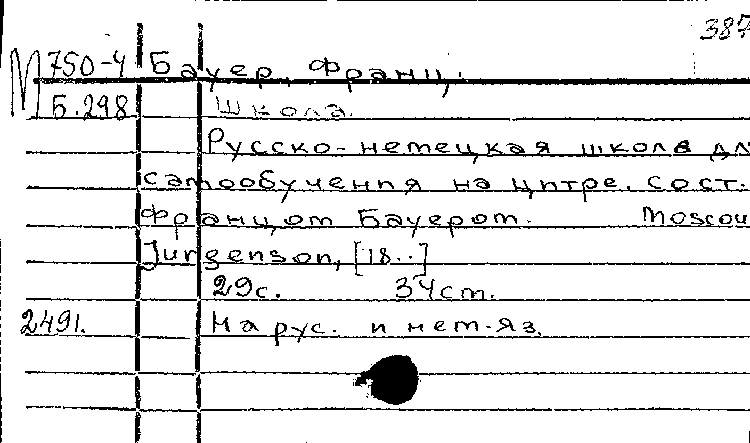 387
М 750-4 Бауер, Франц.
Б.298 Школа.
Русско-немецкая школа дл
самообучения на цитре. сост.
Францом Бауером. Moscou
Jurgenson, [18..]
29с. 34см.
2491. На рус. и нем. яз.